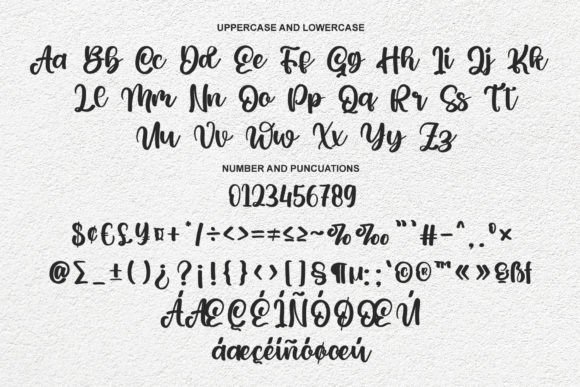 UPPERCASE AND LOWERCASE
Aa Bb Cc Dd Ee Ff Gg Hh Ii Jj Kk
Ll Mm Nn Oo Pp Qq Rr Ss Tt
Uu Vv Ww Xx Yy Zz
NUMBER AND PUNCUATIONS
0123456789
$¢€£¥¤+*/÷<>=≠≤≥~%‰"'`#-^,.º×
@∑_±()¿?¡!{}‹›[]§¶µ:;'©®™«»ßſ
ÁÆÇÉÍÑÓØŒÚ
áæçéíñóøœú